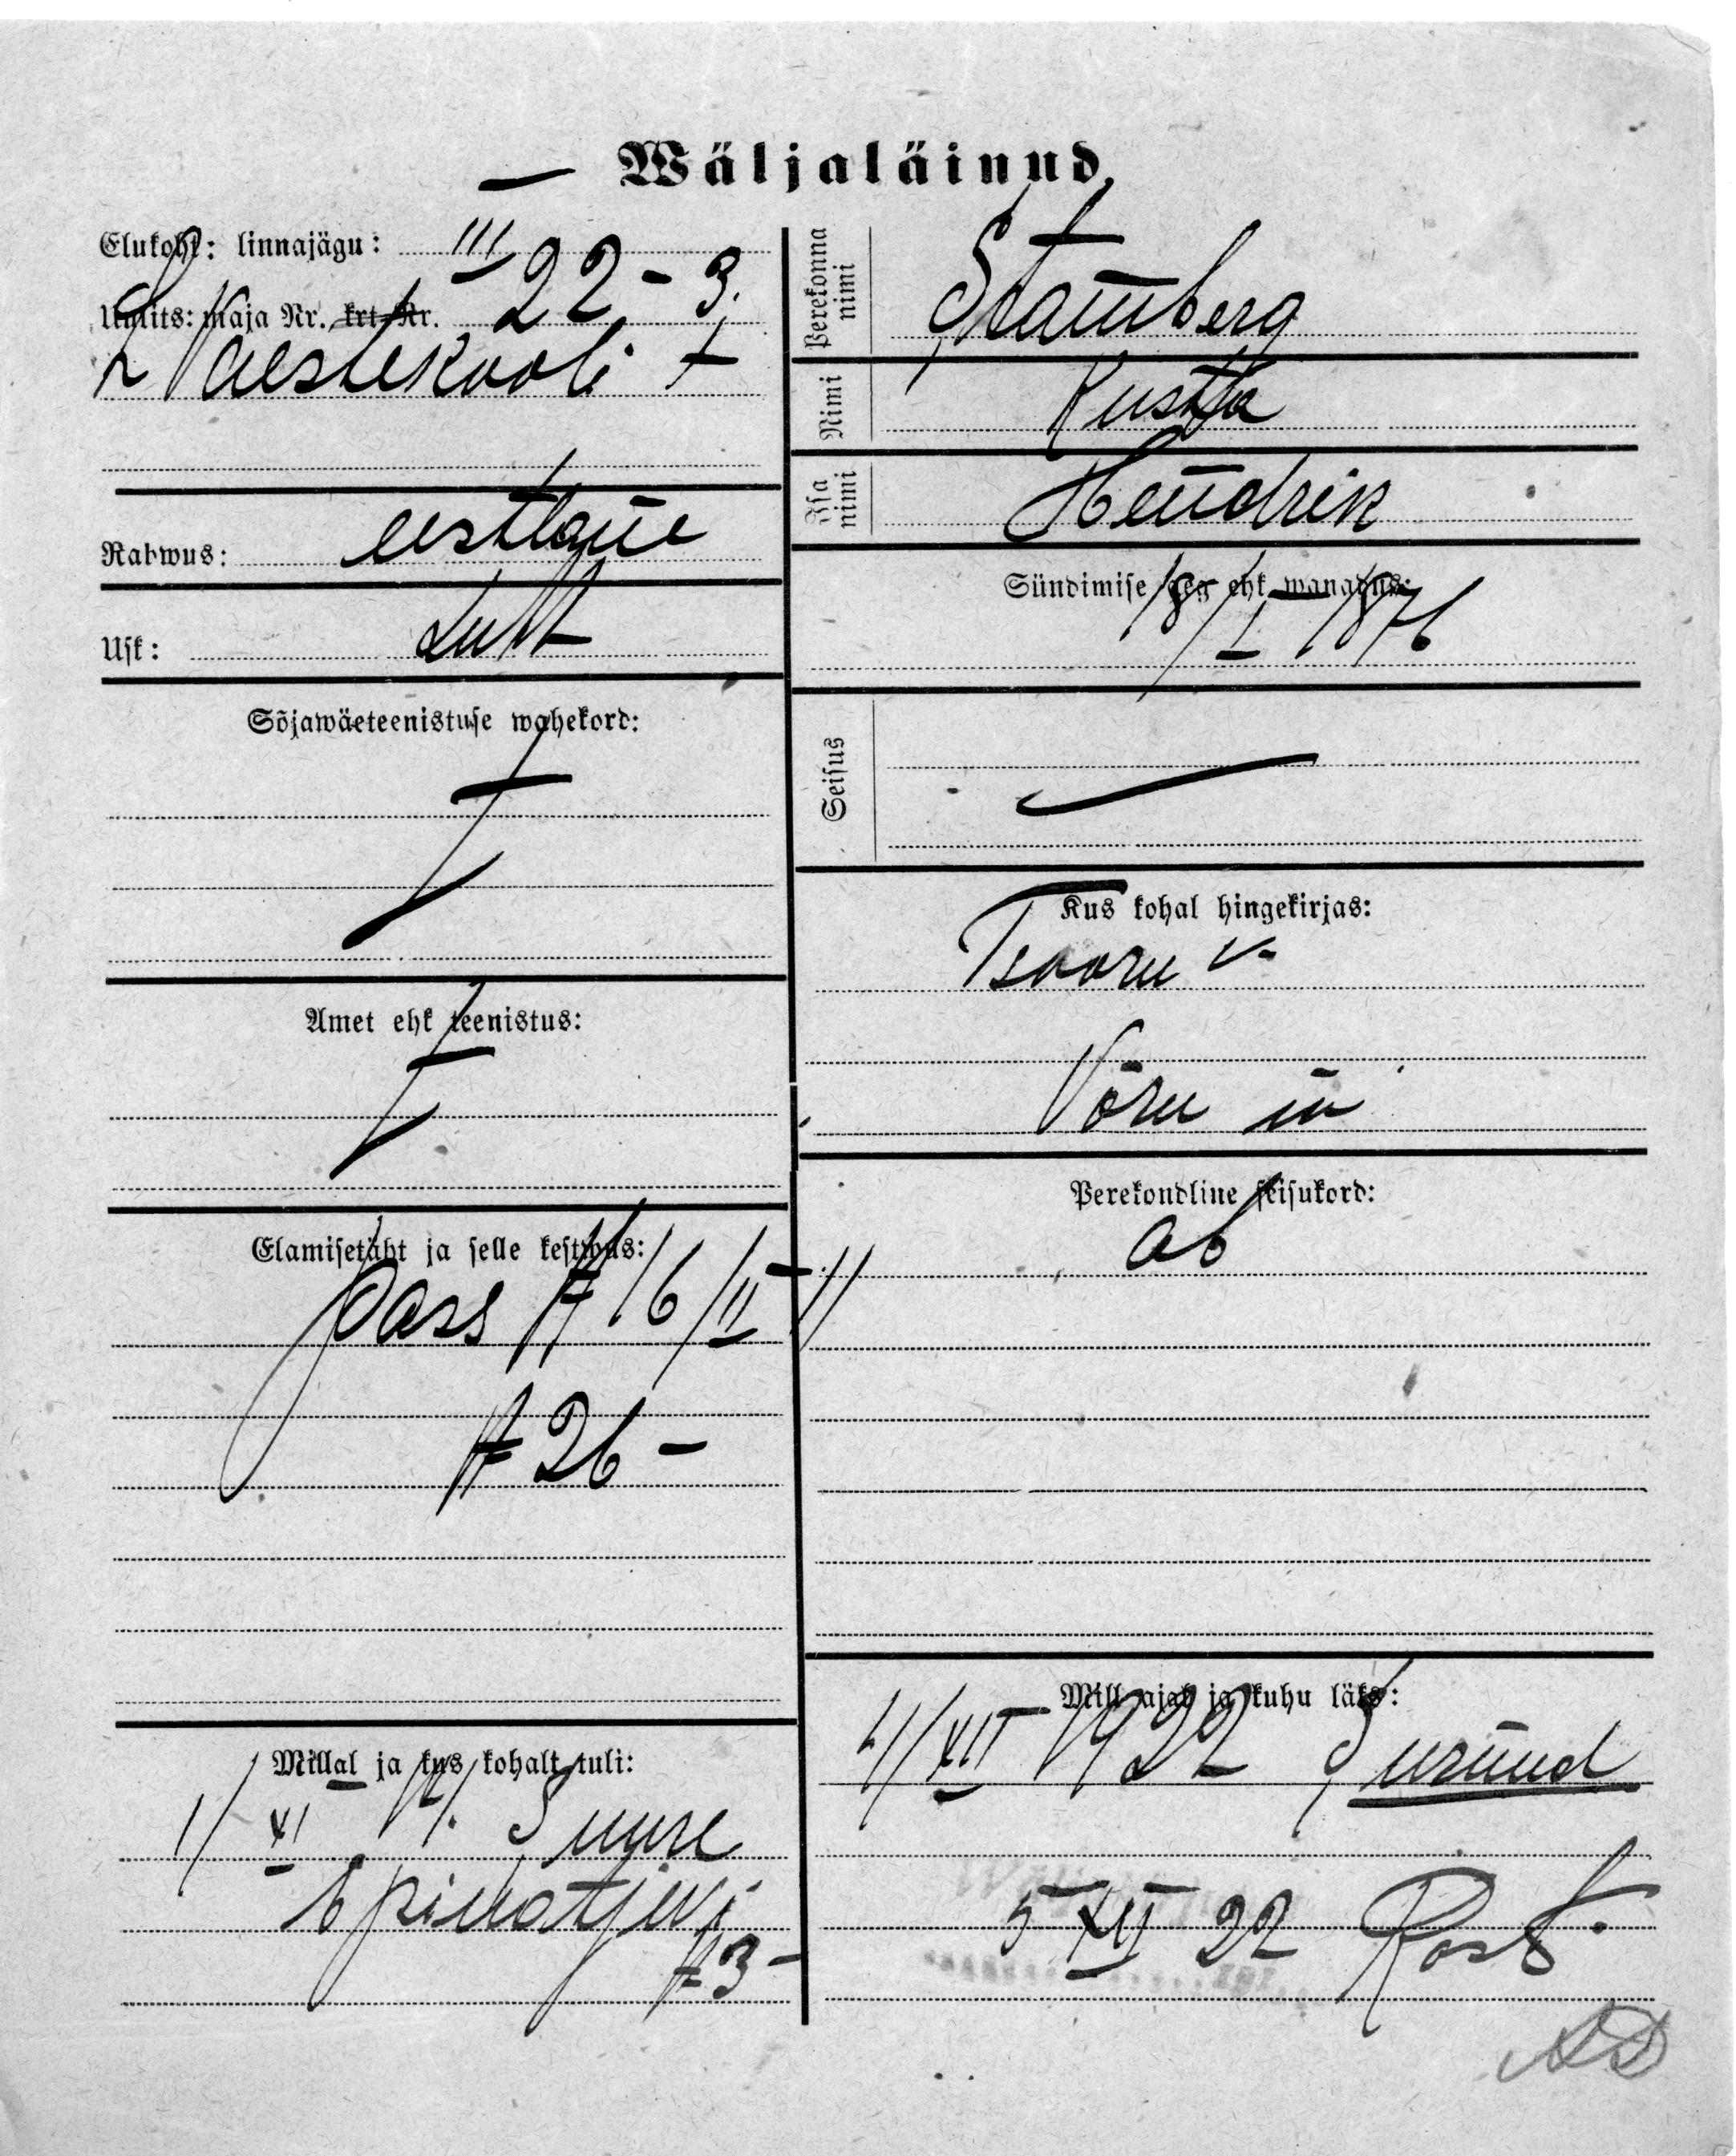 Wäljaläinud.
Elukoht: linnajägu: III
Uulits: maja Nr. krt. Nr. 22-3.
Vaestekooli t
Rahwus: eestlane
Usk: Lutt
Sõjawäeteenistuse wahekord:
Amet ehk teenistus:
Elamisetäht ja selle kestwus:
pass № 16/II 11
№ 26 -
Millal ja kus kohalt tuli:
1/XI 14.
№ 3 -
Perekonna nimi Stamberg
Nimi Kusta
Isa nimi Hendrik
Sündimise aeg ehk wanadus:
18/I 1876
Seisus
Kus kohal hingekirjas:
Tsooru v.
Võru m
Perekondline seisukord:
ab
Mill ajal ja kuhu läks:
4/XII 1922 Surnud
5 XII 22